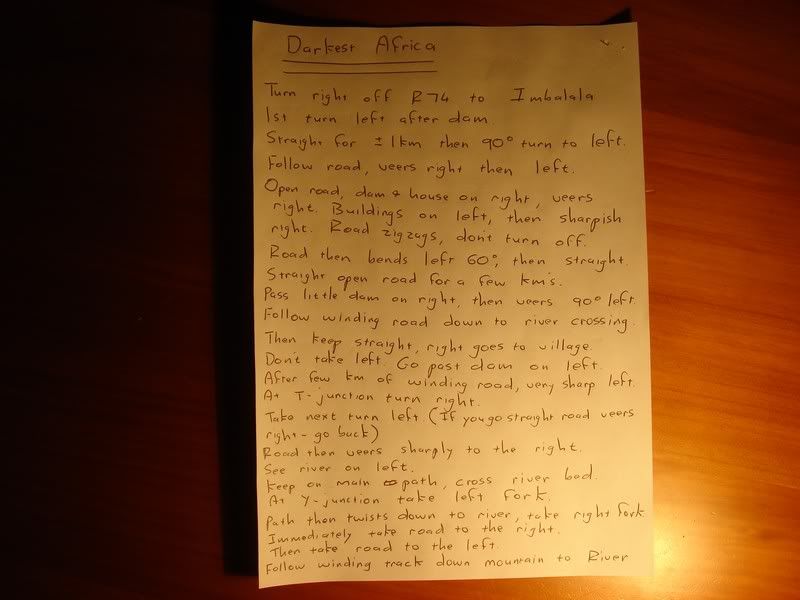 Darkest Africa
Turn right off R74 to Imbalala
1st turn left after dam.
Straight for ± 1km then 90° turn to left.
Follow road, veers right then left.
Open road, dam & house on right, veers
right. Buildings on left, then sharpish
right. Road zigzags, don't turn off.
Road then bends left 60°, then straight.
Straight open road for a few km's.
Pass little dam on right, then veers 90° left.
Follow winding road down to river crossing.
Then keep straight, right goes to village.
Don't take left. Go past dam on left.
After few km of winding road, very sharp left.
At T-junction turn right.
Take next turn left (If you go straight road veers
right - go back)
Road then veers sharply to the right.
See river on left.
Keep on main path, cross river bed.
At Y-junction take left fork.
Path then twists down to river, take right fork
Immediately take road to the right.
Then take road to the left.
Follow winding track down mountain to River